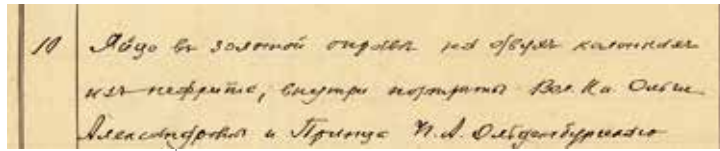 10 Яйцо въ золотой оправѣ на двухъ колонкахъ
изъ нефрита, внутри портреты Вел. Кн. Ольги
Александровны и Принца П. А. Ольденбургскаго